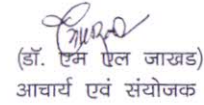 (डॉ. एम एल जाखड)
आचार्य एवं संयोजक